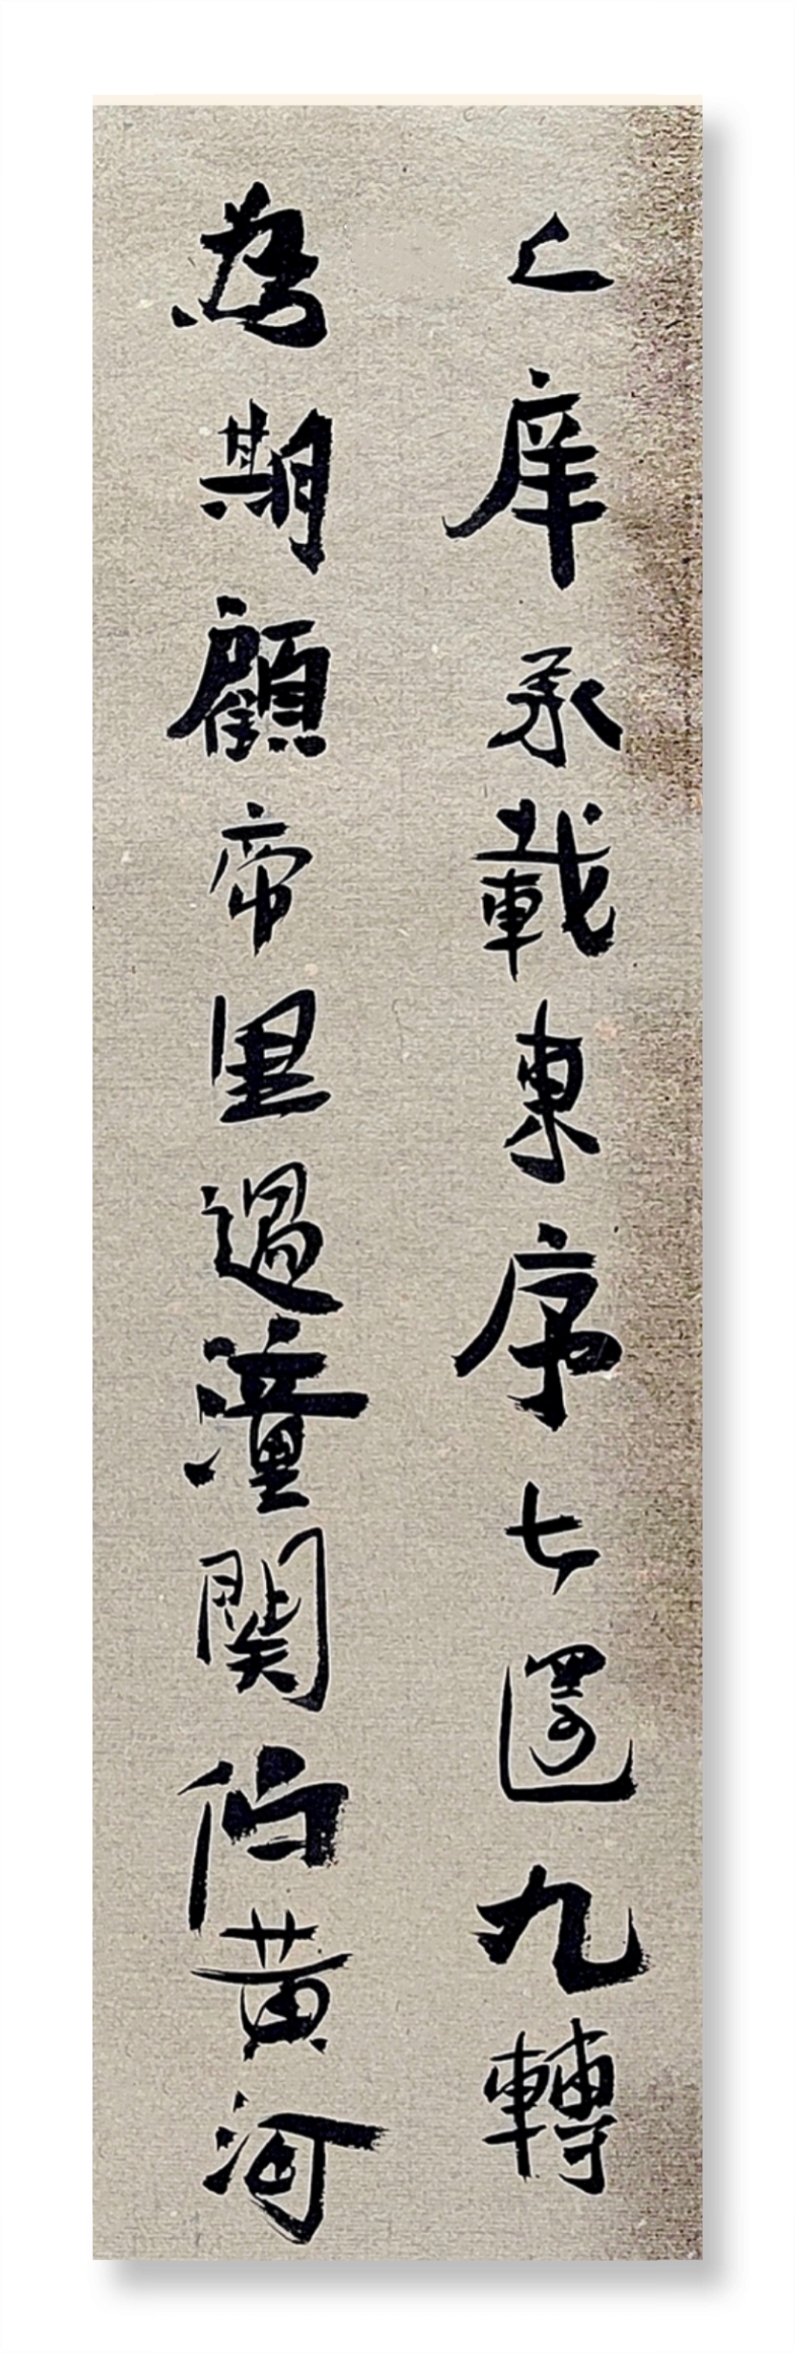 上庠承載東序七還九轉
為期顧帝里過潼關黃河